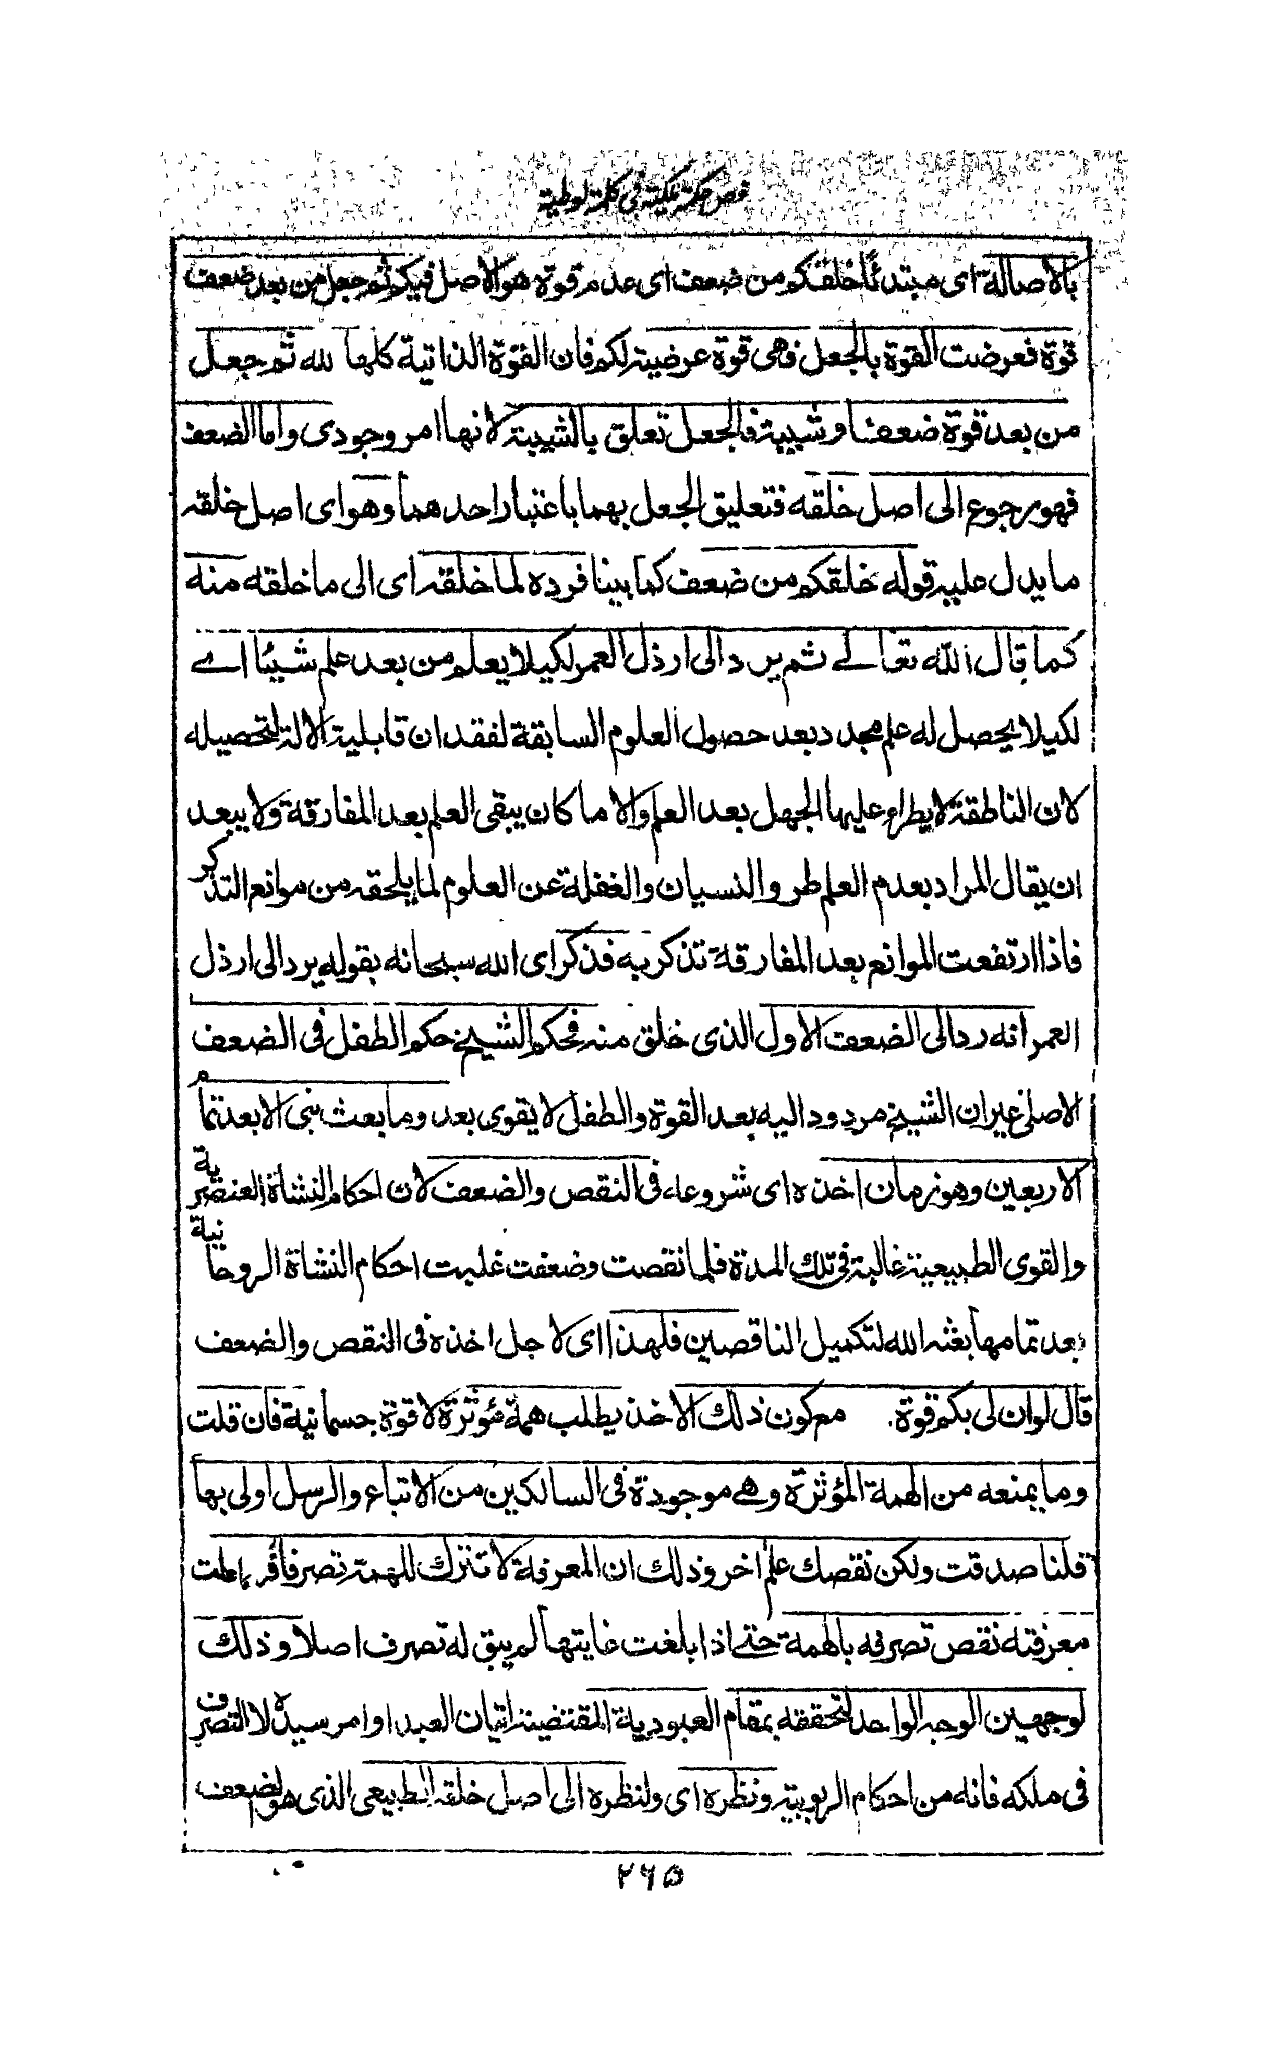 فص حكمة ملكية في كلمة لوطية
بالاصالة اى مبتدئا خلقكم من ضعف اى عدم قوة هو الاصل فيكم ثم جعل من بعد ضعف
قوة فعرضت القوة بالجعل فهى قوة عرضية لكم فان القوة الذاتية كلها لله ثم جعل
من بعد قوة ضعفا وشيبة فالجعل تعلق بالشيبة لانها امر وجودى واما الضعف
فهو رجوع الى اصل خلقه فتعليق الجعل بهما باعتبار احدهما وهو اى اصل خلقه
ما يدل عليه قوله خلقكم من ضعف كما بينا فرده لما خلقه اى الى ما خلقه منه
كما قال الله تعالے ثم يرد الى ارذل العمر لكيلا يعلم من بعد علم شيئا اے
لكيلا يحصل له علم مجدد بعد حصول العلوم السابقة لفقدان قابلية الالة لتحصيله
لان الناطقة لا يطراء عليها الجهل بعد العلم والا ما كان يبقى العلم بعد المفارقة ولا يبعد
ان يقال المراد بعدم العلم طرو النسيان والغفلة عن العلوم لما يلحقه من موانع التذكر
فاذا ارتفعت الموانع بعد المفارقة تذكر به فذكر اى الله سبحانه بقوله يرد الى ارذل
العمر انه رد الى الضعف الاول الذى خلق منه فحكم الشيخ حكم الطفل فى الضعف
الاصلى غير ان الشيخ مردود اليه بعد القوة والطفل لا يقوى بعد وما بعث نبى الا بعد تمام
الاربعين وهو زمان اخذه اى شروعه فى النقص والضعف لان احكام النشاة العنصرية
والقوى الطبيعية غالبة فى تلك المدة فلما نقصت وضعفت غلبت احكام النشاة الروحانية
بعد تمامها بعثه الله لتكميل الناقصين فلهذا اى لاجل اخذه فى النقص والضعف
قال لو ان لى بكم قوة. مع كون ذلك الاخذ يطلب همة مؤثرة لا قوة جسمانية فان قلت
وما يمنعه من الهمة المؤثرة وهے موجودة فى السالكين من الاتباع والرسل اولى بها
قلنا صدقت ولكن نقصك علم اخر وذلك ان المعرفة لا تترك للهمة تصرفا فكر بما علت
معرفته نقص تصرفه بالهمة حتے اذا بلغت غايتها لم يبق له تصرف اصلا وذلك
لوجهين الوجه الواحد لتحققه بمقام العبودية المقتضية اتيان العبد اوامر سيده لا التصرف
فى ملكه فانه من احكام الربوبية ونظره اى ولنظره الى اصل خلقه الطبيعى الذى هو الضعف
۲۶۵